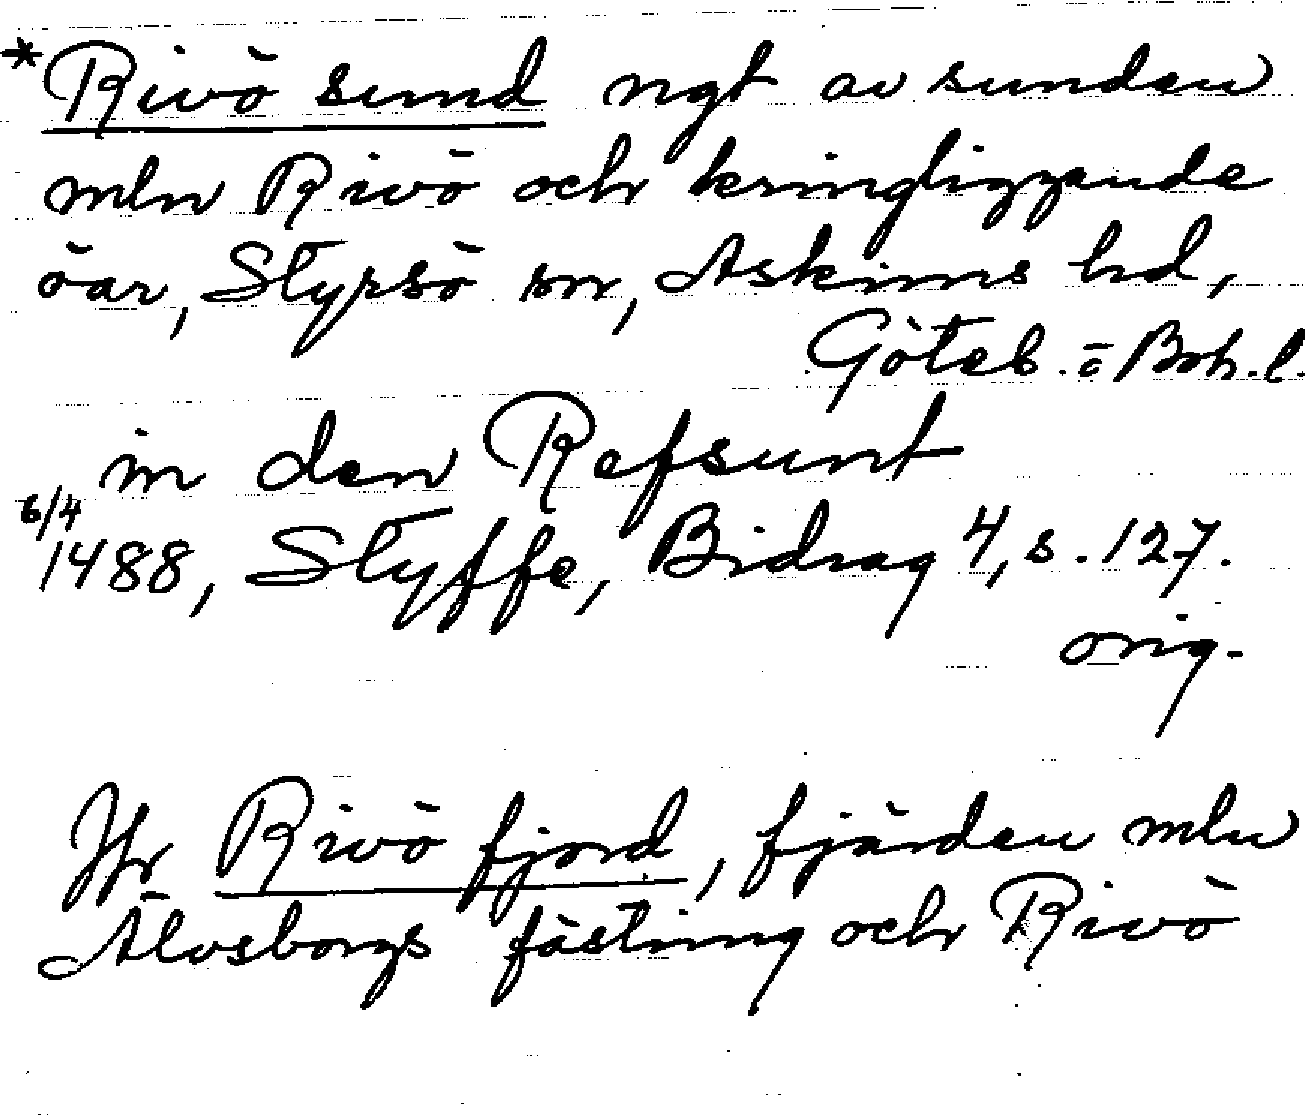 *Rivö sund ngt av sunden
mln Rivö och kringliggande
öar, Styrsö sn, Askims hd,
Göteb. o Boh. l.
in den Refsunt
6/4
1488, Styffe, Bidrag 4, s. 127.
orig.
Jfr Rivö fjord, fjärden mln
Älvsborgs fästning och Rivö